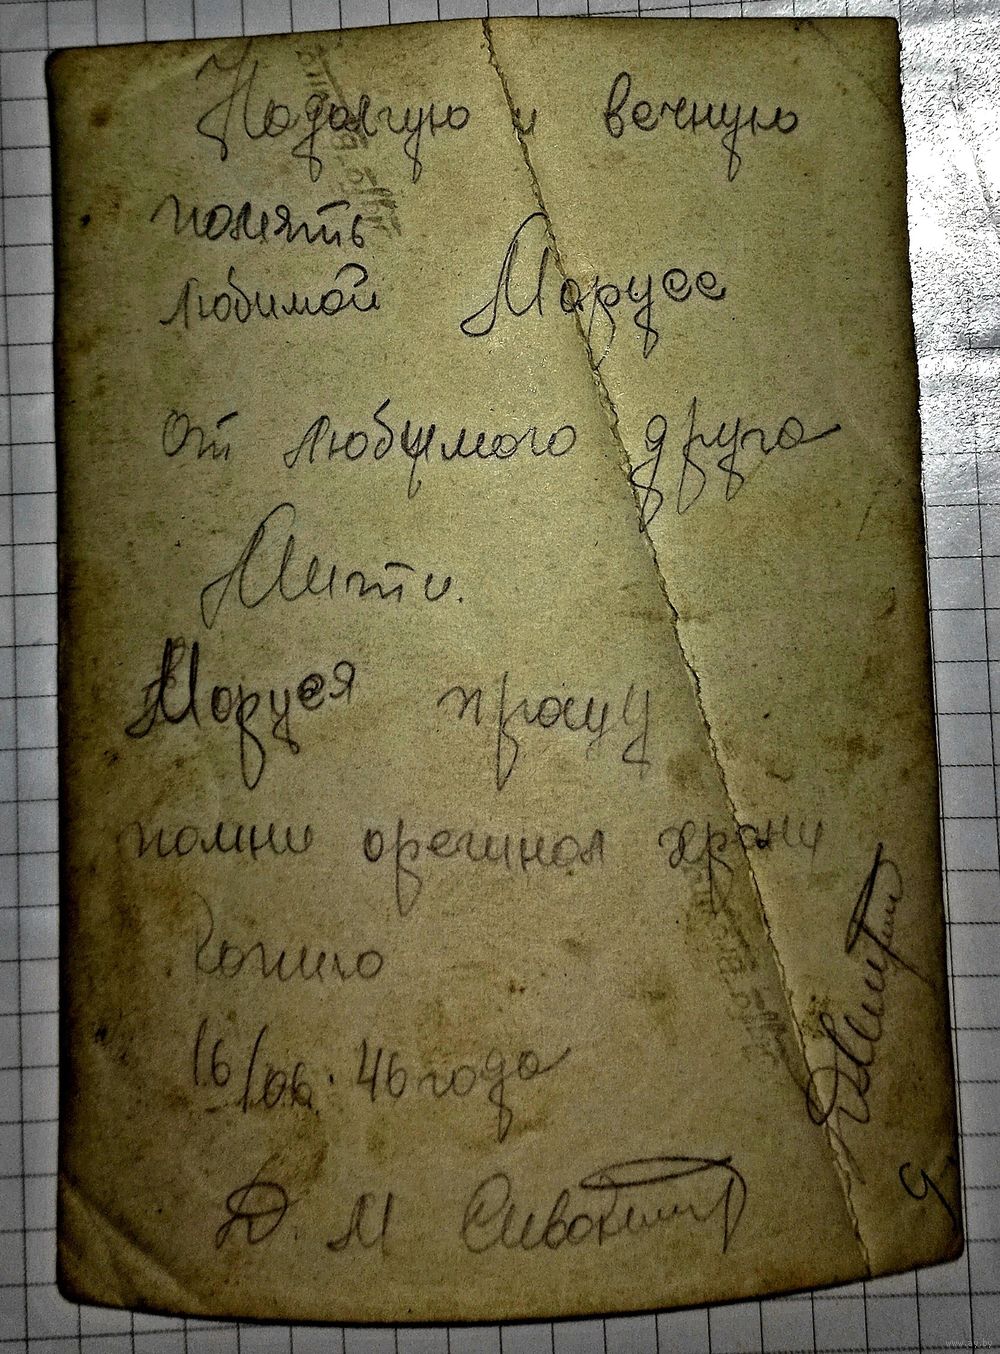 Надолгую и вечную
помять
любимой Марусе
От любимого друга
Мити.
Маруся прошу
помни орегинал храни
Копию
16/06. 46 года
Д. М
Дмит
www.ay.by